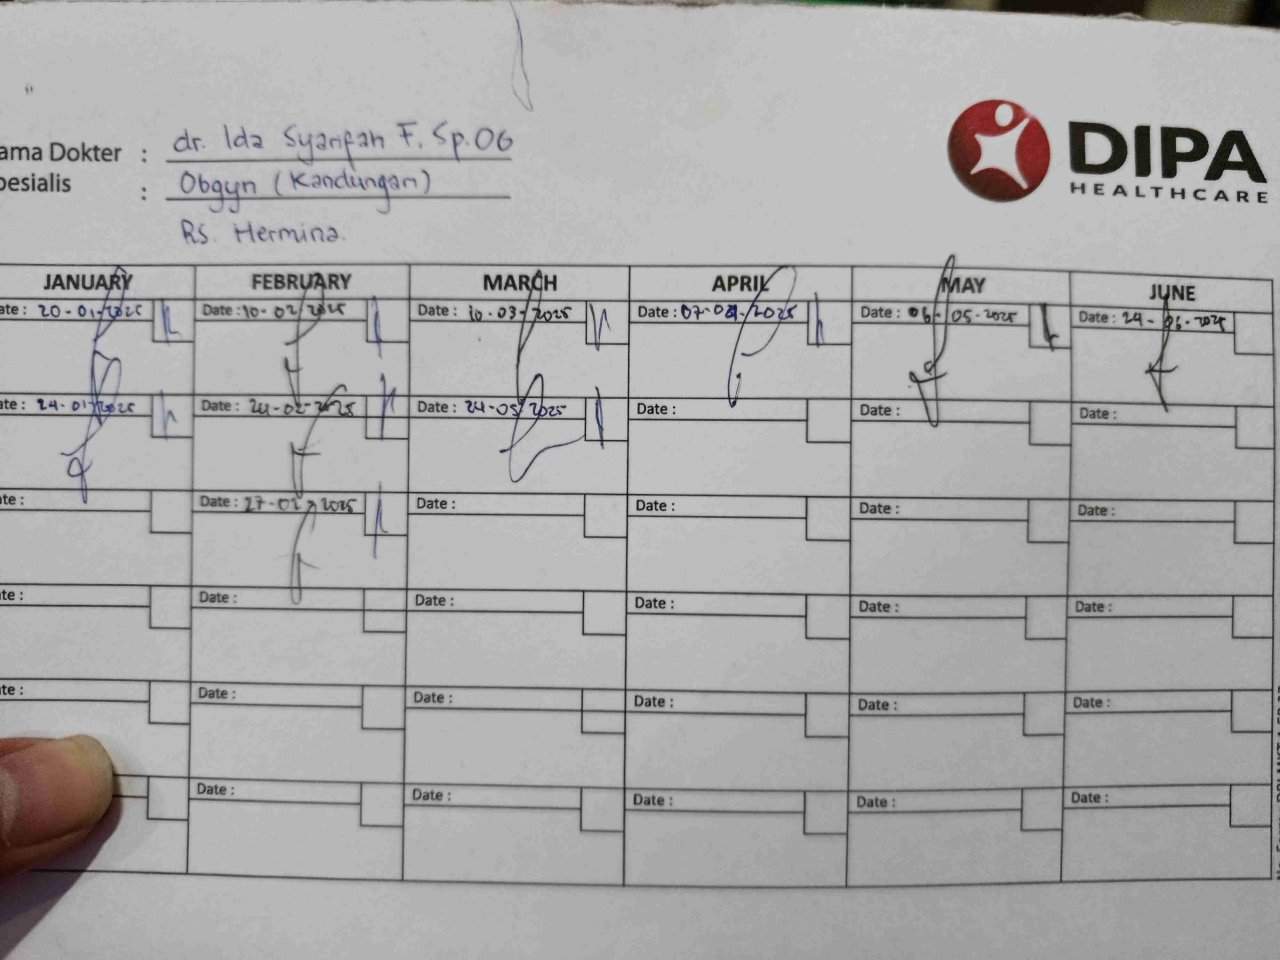 ama Dokter : dr. Ida Syarifah F. Sp.OG
pesialis : Obgyn (Kandungan)
RS. Hermina.
DIPA
HEALTHCARE
JANUARY FEBRUARY MARCH APRIL MAY JUNE
ate : 20-01-2025 Date : 10-02-2025 Date : 10-03-2025 Date : 07-04-2025 Date : 06-05-2025 Date : 24-06-2025
ate : 24-01-2025 Date : 24-02-2025 Date : 24-03-2025 Date : Date : Date :
te : Date : 27-02-2025 Date : Date : Date : Date :
te : Date : Date : Date : Date : Date :
te : Date : Date : Date : Date : Date :
Date : Date : Date : Date : Date :